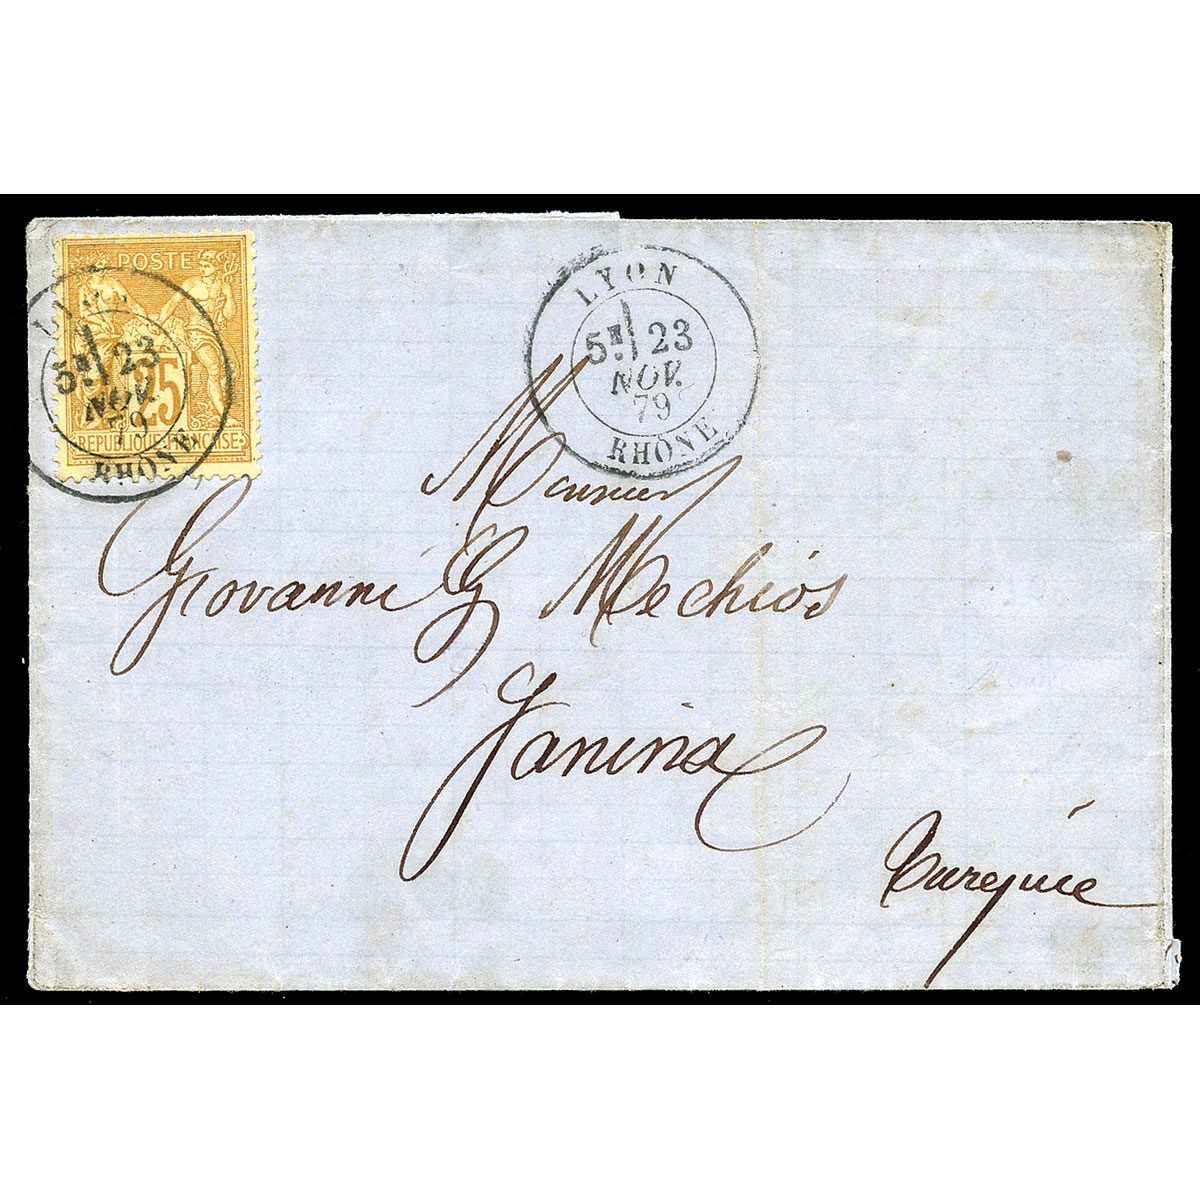 POSTE
25
REPUBLIQUE FRANÇAISE
LYON
5E 23
NOV.
79
RHÔNE
LYON
5E 23
NOV.
79
RHÔNE
Monsieur
Giovanni G Mechios
Janina
Turquie